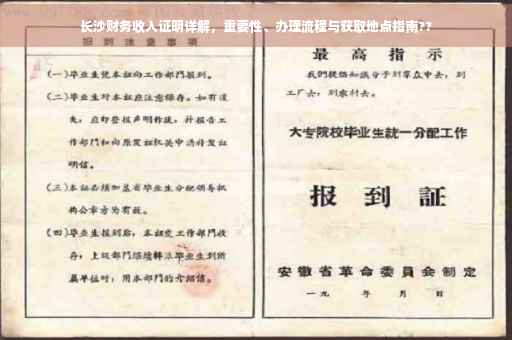 长沙财务收入证明详解，重要性、办理流程与获取地点指南??
报到注意事项
(一)毕业生凭本证向工作部门报到。
(二)毕业生对本证应注意保存。如有遗
失，应即登报声明作废，并报告工
作部门和向原发证机关申请补发证
明信。
(三)本证必须加盖省毕业生分配领导机
构公章方为有效。
(四)毕业生报到后，本证交工作部门收
存；上级部门
毕业生到所
属单位时，用本部门的介绍信。
最高指示
我们提倡知识分子到群众中去，到
工厂去，到农村去。
大专院校毕业生统一分配工作
报到证
安徽省革命委员会制定
一九 年 月 日